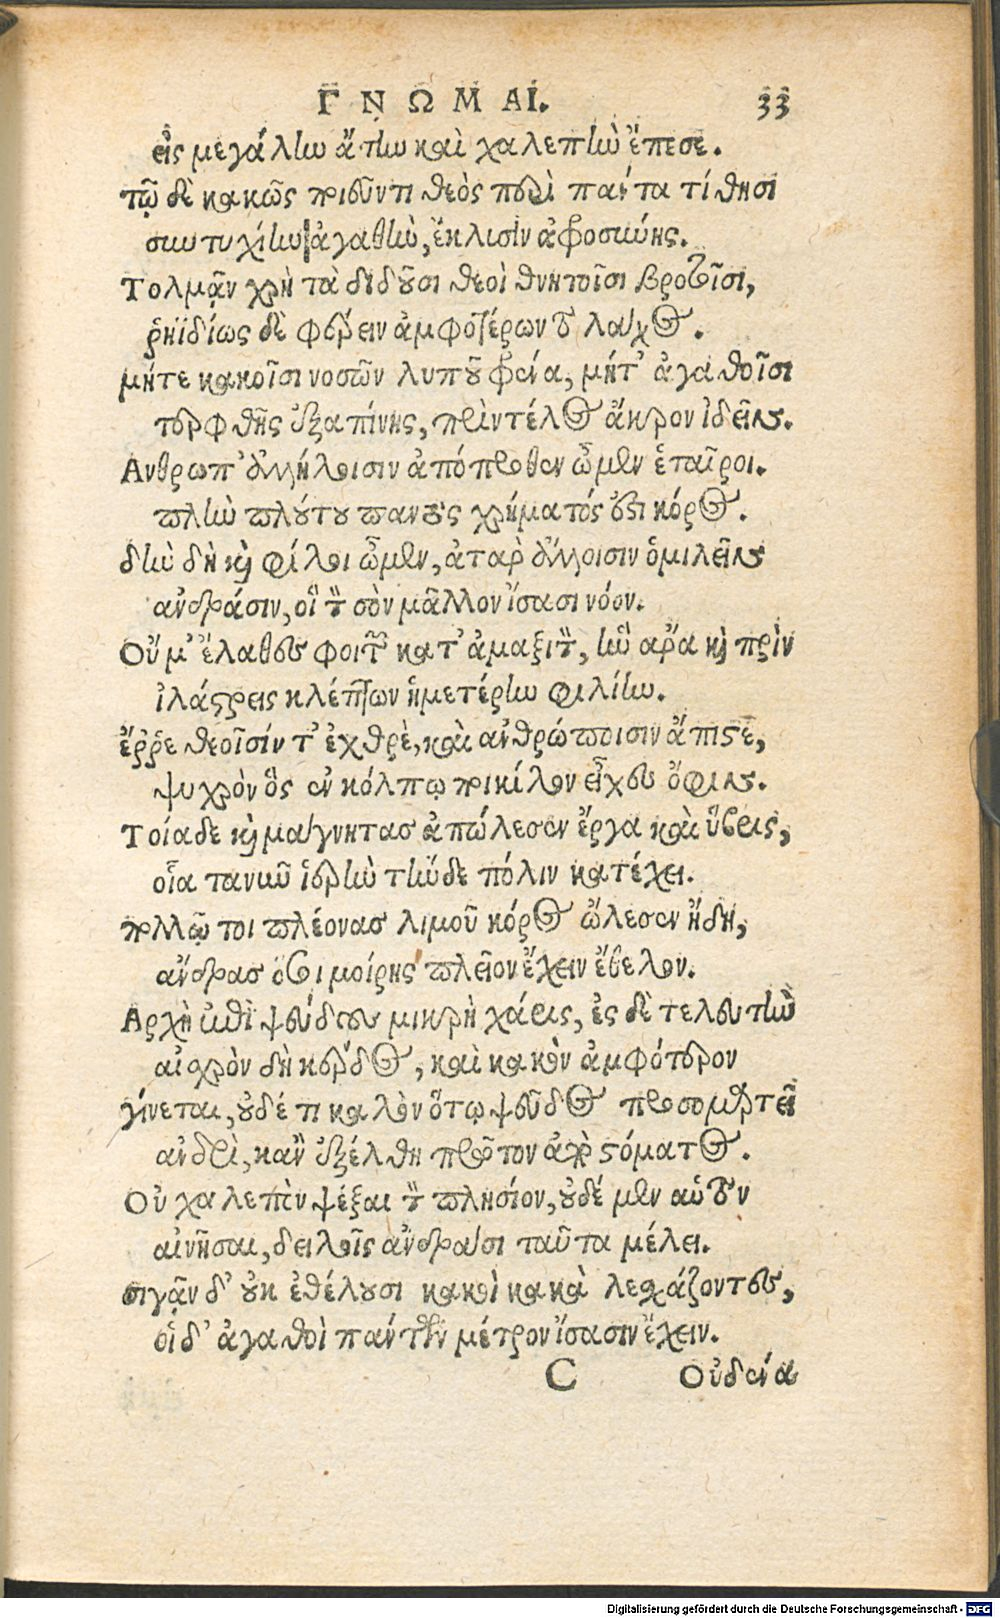 ΓΝΩΜΑΙ. 33
εἰς μεγάλην ἄτην καὶ χαλεπὴν ἔπεσε.
τῷ δὲ κακῶς ποιοῦντι θεὸς περὶ πάντα τίθησι
συντυχίην ἀγαθὴν, ἔκλισιν ἀφροσύνης.
Τολμᾷν χρὴ τὰ διδοῦσι θεοὶ θνητοῖσι βροτοῖσι,
ῥηϊδίως δὲ φέρειν ἀμφοτέρων τὸ λάχος.
μήτε κακοῖσι νοσῶν λυποῦ φρένα, μήτ' ἀγαθοῖσι
τερφθῇς ἐξαπίνης, πρὶν τέλος ἄκρον ἰδεῖν.
Ανθρωπ' ἀλλήλοισιν ἀπόπροθεν ὦμεν ἑταῖροι.
πλὴν πλούτου παντὸς χρήματός ἐστι κόρος.
δὴν δὴ καὶ φίλοι ὦμεν, ἀτὰρ ἄλλοισιν ὁμιλεῖν
ἀνδράσιν, οἳ τὸν σὸν μᾶλλον ἴσασι νόον.
Οὔ μ' ἔλαθες φοιτῶν κατ' ἀμαξιτὸν, ἣν ἄρα καὶ πρὶν
ἰλάστρεις κλέπτων ἡμετέρην φιλίην.
ἔῤῥε θεοῖσίν τ' ἐχθρὲ, καὶ ἀνθρώποισιν ἄπιστε,
ψυχρὸν ὃς ἐν κόλπῳ ποικίλον εἶχες ὄφιν.
Τοίαδε καὶ μάγνητας ἀπώλεσεν ἔργα καὶ ὕβρις,
οἷα τανῦν ἱερὴν τήνδε πόλιν κατέχει.
πολλῷ τοι πλέονας λιμοῦ κόρος ὤλεσεν ἤδη,
ἄνδρας ὅσοι μοίρης πλεῖον ἔχειν ἔθελον.
Αρχὴ ἐπὶ ψεύδους μικρὴ χάρις, ἐς δὲ τελευτὴν
αἰσχρὸν δὴ κέρδος, καὶ κακὸν ἀμφότερον
γίνεται, οὐδέ τι καλὸν ὅτῳ ψεῦδος προσομαρτεῖ
ἀνδρὶ, κἂν ἐξέλθῃ πρῶτον ἀπὸ στόματος.
Οὐ χαλεπὸν ψέξαι τὸν πλησίον, οὐδέ μεν αὑτὸν
αἰνῆσαι, δειλοῖς ἀνδράσι ταῦτα μέλει.
σιγᾷν δ' οὐκ ἐθέλουσι κακοὶ κακὰ λεσχάζοντες,
οἱ δ' ἀγαθοὶ πάντων μέτρον ἴσασιν ἔχειν.
C Οὐδένα
Digitalisierung gefördert durch die Deutsche Forschungsgemeinschaft - DFG